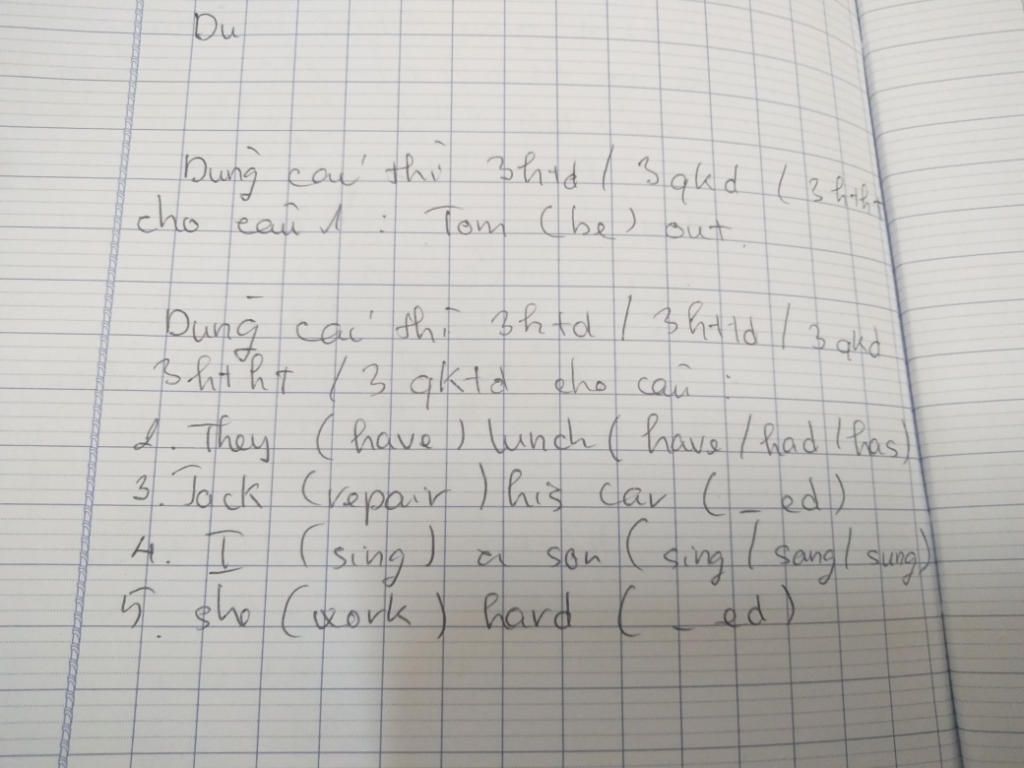 Du
Dùng các thì 3htd / 3qkd / 3htht
cho câu 1 : Tom (be) out.
Dùng các thì 3htd / 3httd / 3qkd
3htht / 3 qktd cho câu :
2. They (have) lunch (have / had / has)
3. Jack (repair) his car (_ ed)
4. I (sing) a son (sing / sang / sung)
5. She (work) hard (_ ed)